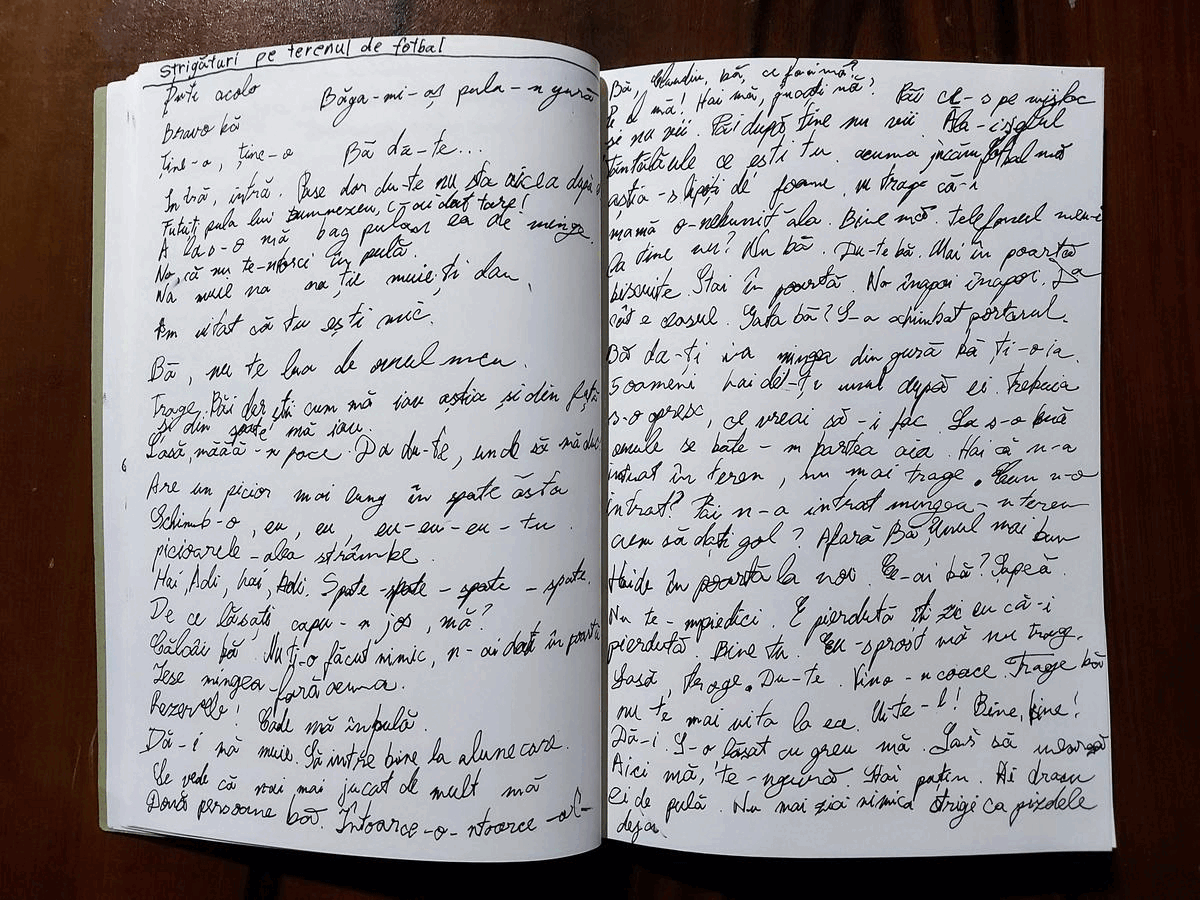 strigături pe terenul de fotbal
Puti acolo Băga-mi-aș pula-n gură
Bravo bă
Ține-o, ține-o Bă da-te...
Intră, intră. Pase dar du-te nu sta aicea după
Fututi pula lui Dumnezeu, că ai dat tare!
A las-o mă bag pula ea de minge.
No, că nu te-ntorci în pulă.
Na muie na na ție muie, ți dau
Am uitat că tu ești mic.
Bă, nu te lua de omul meu.
Trage. Păi der ești cum mă iau aștia și din față
și din spate mă iau.
Lasă, măăă-n pace. Da du-te, unde să mă duc
Are un picior mai lung în spate ăsta
Schimb-o, eu, eu eu-eu-eu-tu.
picioarele-alea strâmbe.
Hai, Adi, hai, Adi. Spate-spate-spate-spate.
De ce lăsați capu-n jos, mă?
Călcâi bă. Nu ți-o făcut nimic, n-ai dat în poartă
Iese mingea-fară acuma.
Rezervele! Cade mă în pulă.
Dă-i mă muie. Să intre bine la alunecare.
Se vede că n-ai mai jucat de mult mă
Două persoane bă. Întoarce-o-ntoarce-o
Bă, Claudiu, bă, ce faci mă?
mă! Hai mă, jucați mă? Păi ce-s pe mijloc
și nu vii. Păi după tine nu vii. Ăla-i golul
țintălăule ce ești tu. acuma jucăm fotbal mă
aștia-s lipiți de foame, n trage că-i
mamă o-nebunit ăla. Bine mă. Telefonul meu-i
la tine nu? Nu bă. Du-te bă. Mai în poartă
biscuite. Stai în poartă. No înapoi înapoi. Da
cât e ceasul. Gata bă? S-a schimbat portarul.
Bă da-ți ia mingea din gură bă, ți-o ia.
5 oameni hai de-ți unul după ei. trebuia
s-o opresc, ce vreai să-i fac. La s-o bă
omule se bate-m partea aia. Hai că n-a
intrat în teren, nu mai trage. Cum n-o
intrat? Păi n-a intrat mingea-n teren
cum să dați gol? Afară Bă, Unul mai bun
Haide în poartă la noi. Ce-ai bă? Țapeă
Nu te-mpiedici. E pierdută îți zic eu că-i
pierdută. Bine tu. Eu-s prost mă nu trage.
Lasă, trage. Du-te. Vino-ncoace. Trage bă
nu te mai uita la ea. Uite-l! Bine, bine!
Dă-i. I-o lăsat cu greu mă. Lasă să
Aici mă, te-ngură. Hai puțin. Ai dracu
ei de pulă. Nu mai zici nimica strigi ca pizdele
deja.